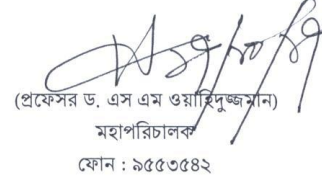 (প্রফেসর ড. এস এম ওয়াহিদুজ্জামান)
মহাপরিচালক
ফোন : ৯৫৫৩৫৪২